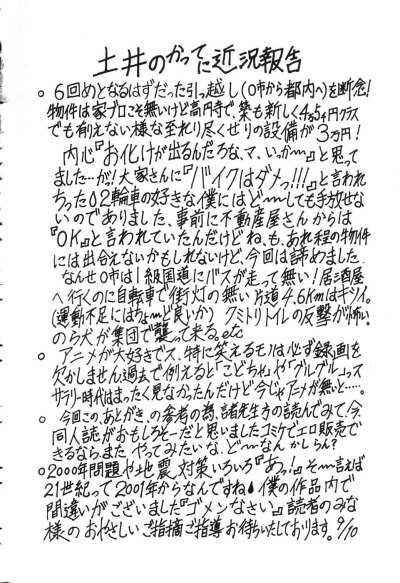 土井のかってに近況報告
。６回めとなるはずだった引っ越し(O市から都内へ)を断念!
物件は家ブロこそ無いけど高円寺で、築も新しく4~5万円クラス
でも有えない様な至れり尽くせりの設備が３万円!
内心『お化けが出るんだろな、マ、いっかー』と思って
ました…が!大家さんに『バイクはダメっ!!!』と言われ
ちった○2輪車の好きな僕にはどーしても手放せな
いのでありました、事前に不動産屋さんからは
『OK』と言われていたんだけどね、も、あれ程の物件
には出合えないかもしれないけど、今回は諦めました
なんせO市は1級国道にバスが走って無い!居酒屋
へ行くのに自転車で街灯の無い片道4.6Kmはキツイ。
(運動不足にはちょーど良いか)クミトリトイレの反撃が怖い。
のら犬が集団で襲って来る。etc
。アニメが大好きでス、特に笑えるモノは必ず録画を
欠かしません過去で例えると「こどちゃ」や「グルグル」っス
サラリー時代はまったく見なかったんだけど今じゃアニメが無いと……。
。今回この、あとがき、の参考の為、諸先生方の読んでみて、今、
同人誌がおもしろそーだと思いましたコミケでエロ販売で
きるなら、また やってみたいな、どーなんかしらん?
。2000年問題や地震対策いろいろ『あっ!』そー言えば
21世紀って2001年からなんですね 僕の作品内で
間違いがございました『ゴメンなさい』読者のみな
様の おやさしい ご指摘ご指導 お待ちいたしております。9/10